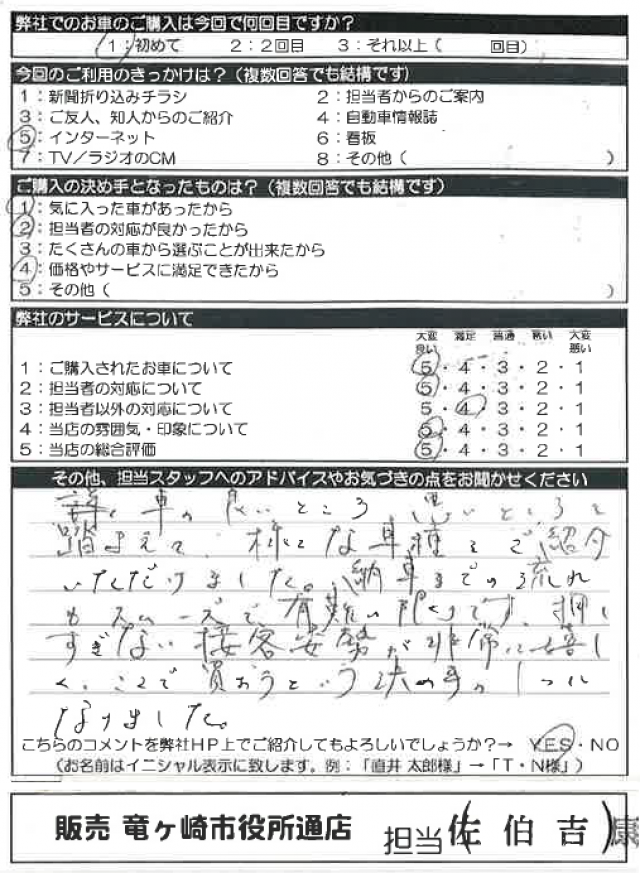 弊社でのお車のご購入は今回で何回目ですか?
1:初めて 2:2回目 3:それ以上( 回目)
今回のご利用のきっかけは?(複数回答でも結構です)
1:新聞折り込みチラシ 2:担当者からのご案内
3:ご友人、知人からのご紹介 4:自動車情報誌
5:インターネット 6:看板
7:TV/ラジオのCM 8:その他( )
ご購入の決め手となったものは?(複数回答でも結構です)
1:気に入った車があったから
2:担当者の対応が良かったから
3:たくさんの車から選ぶことが出来たから
4:価格やサービスに満足できたから
5:その他( )
弊社のサービスについて
大変良い 満足 普通 悪い 大変悪い
1:ご購入されたお車について 5・4・3・2・1
2:担当者の対応について 5・4・3・2・1
3:担当者以外の対応について 5・4・3・2・1
4:当店の雰囲気・印象について 5・4・3・2・1
5:当店の総合評価 5・4・3・2・1
その他、担当スタッフへのアドバイスやお気づきの点をお聞かせください
車の良いところ 悪いところを
踏まえて、様々な車種をご紹介
いただけました。納車までの流れ
もスムーズで、有難い限りです。押し
すぎない接客姿勢が非常に嬉し
く、ここで買おうという決め手の1つに
なりました。
こちらのコメントを弊社HP上でご紹介してもよろしいでしょうか?→ YES・NO
(お名前はイニシャル表示に致します。例:「直井 太郎様」→「T・N様」)
販売 竜ヶ崎市役所通店 担当(佐伯吉)康